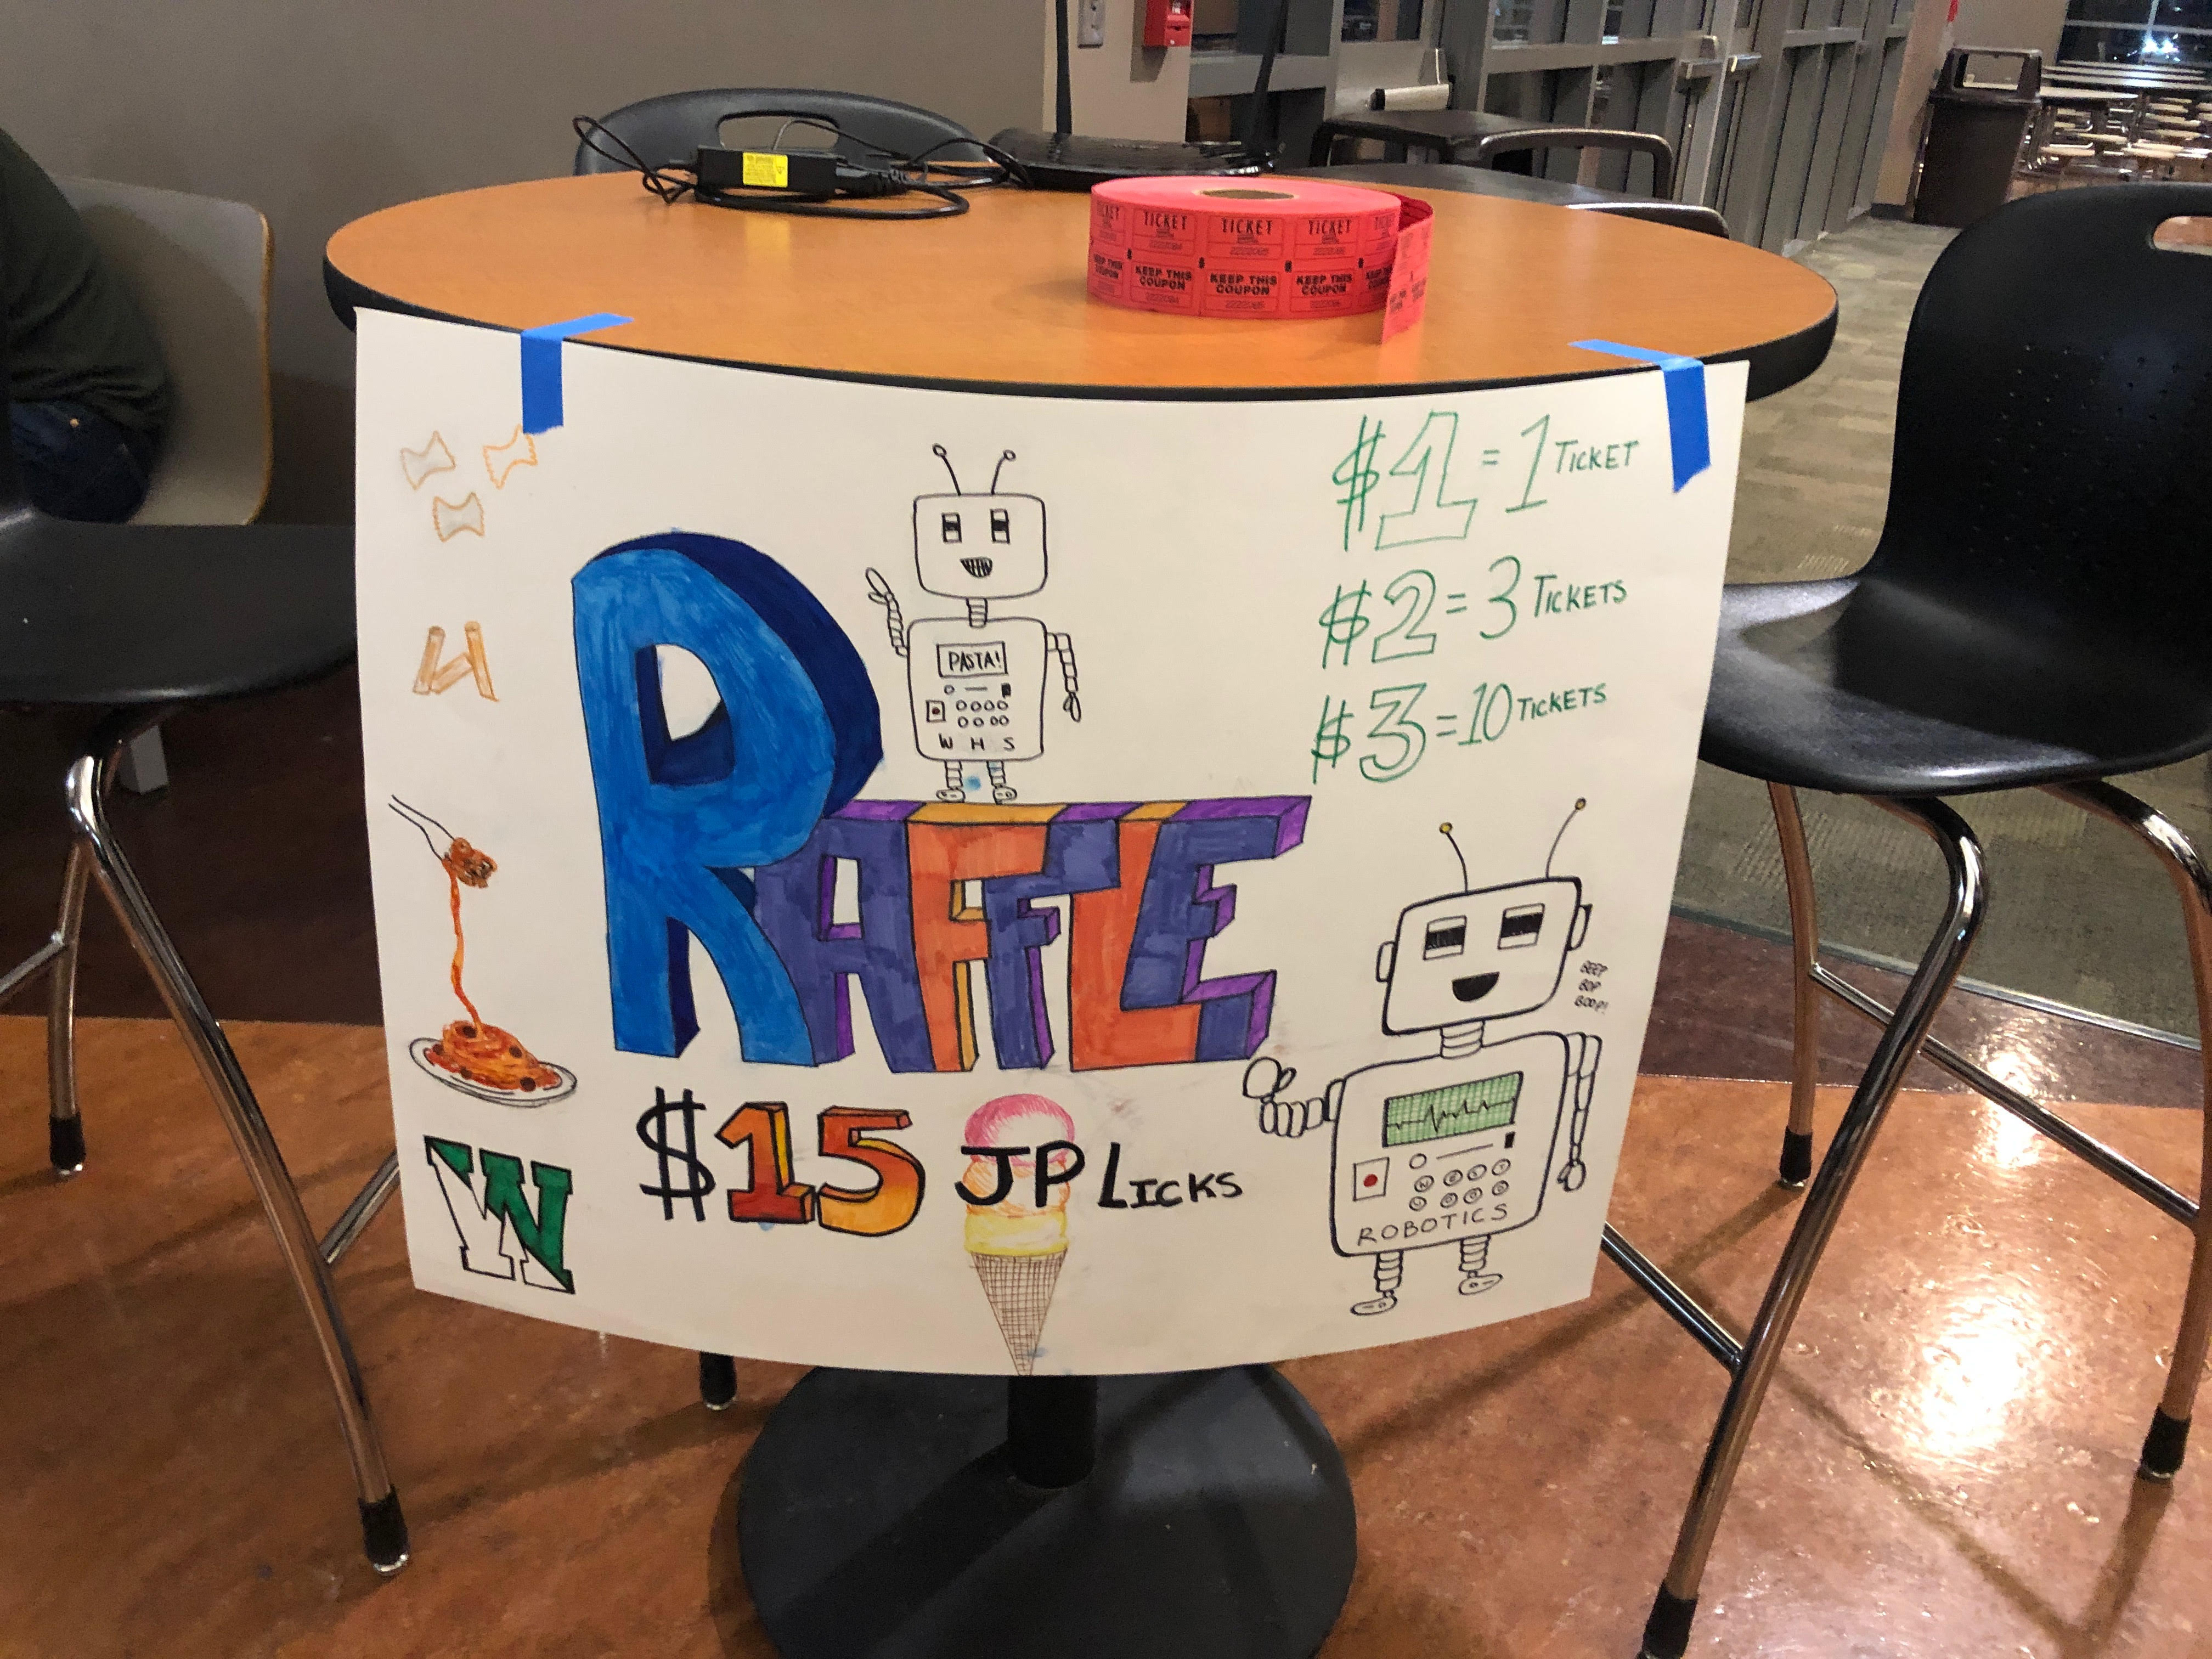 TICKET TICKET TICKET TICKET
KEEP THIS COUPON KEEP THIS COUPON KEEP THIS COUPON KEEP THIS
$1 = 1 TICKET
$2 = 3 TICKETS
$3 = 10 TICKETS
PASTA!
W H S
RAFFLE
BEEP
BOP
BOOP!
$15 JP LICKS
ROBOTICS
W